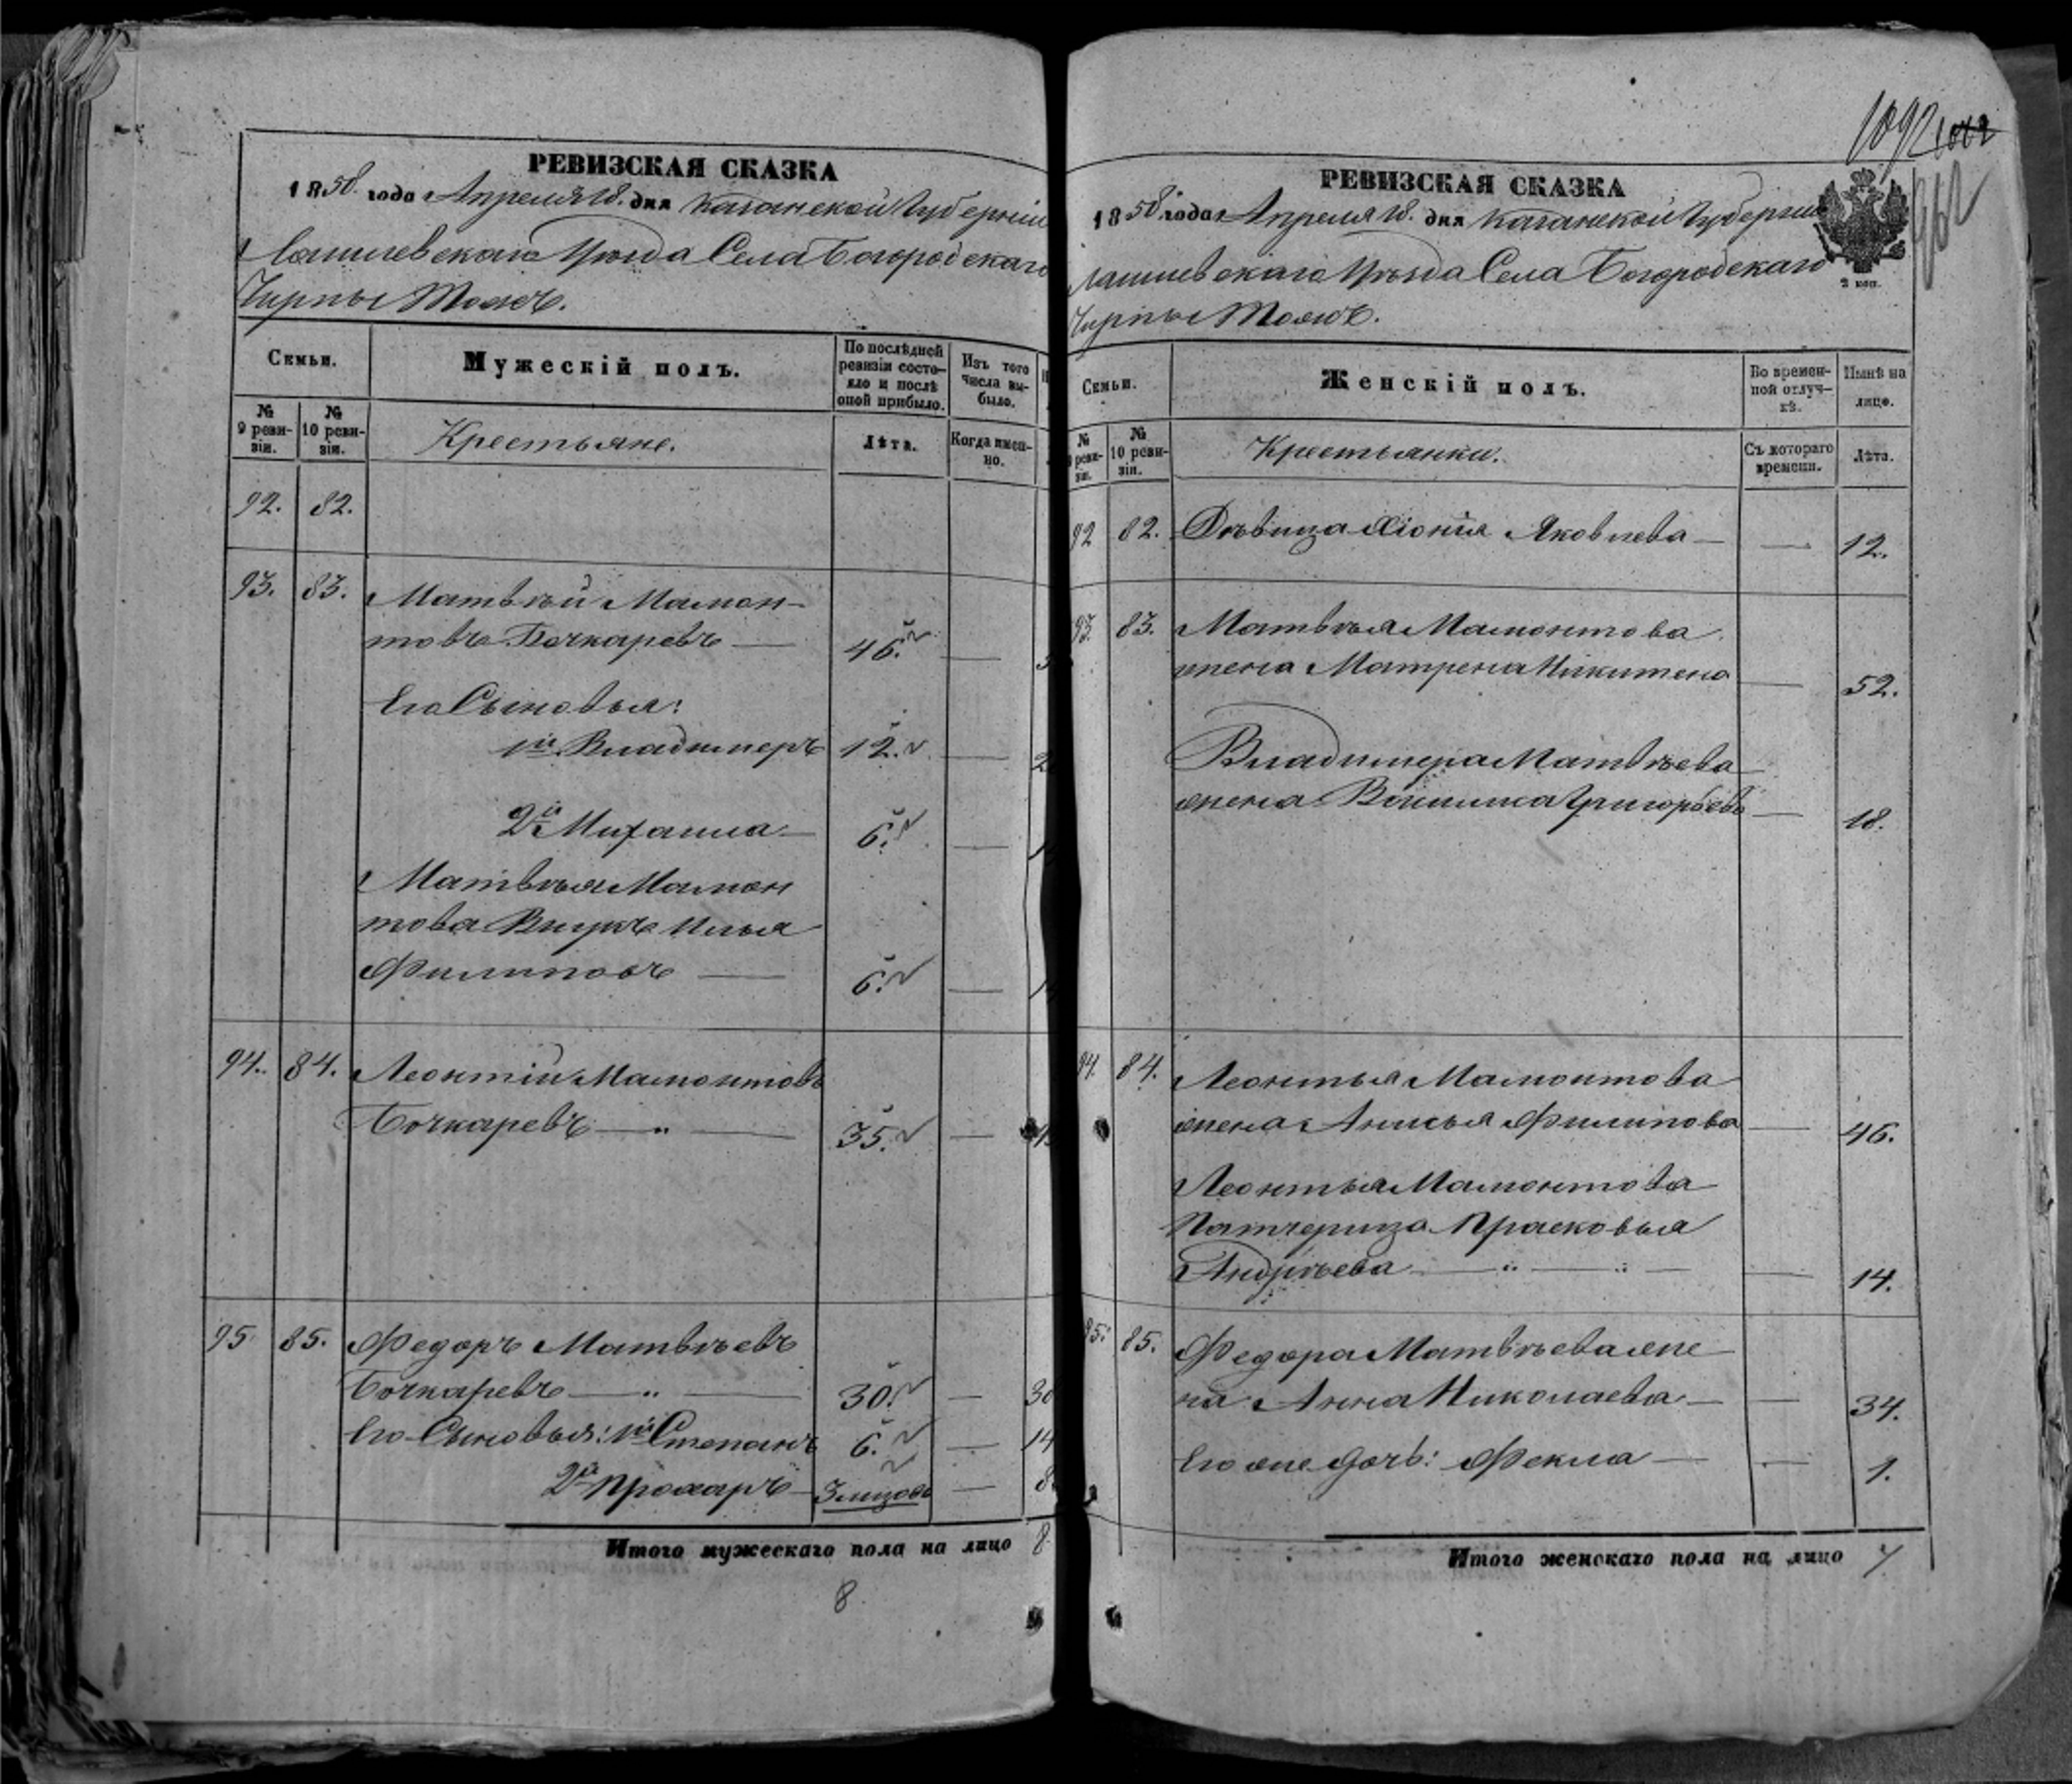 РЕВИЗСКАЯ СКАЗКА
1858 года Апреля 18. дня Казанской Губерніи
Лаишевскаго Уѣзда Села Богородскаго
Чирпы Тожъ.
Семьи.
Мужескій полъ.
По послѣдней ревизіи состояло и послѣ оной прибыло.
Изъ того числа выбыло.
№ 9 ревизіи.
№ 10 ревизіи.
Крестьяне.
Лѣта.
Когда именно.
92. 82.
93. 83. Матвѣй Мамон-
товъ Бочкаревъ — 46. —
Его Сыновья:
1й Владимеръ 12. —
2й Михаила — 6. —
Матвѣя Мамон
това Внукъ Илья
Филиповъ — 6. —
94. 84. Леонтій Мамонтовъ
Бочкаревъ — „ — 35. —
95 85. Федоръ Матвѣевъ
Бочкаревъ — „ — 30. — 30
Его Сыновья: 1й Степанъ 6. — 14
2й Прохаръ — — 8
Итого мужескаго пола на лицо 8
8.
1092
РЕВИЗСКАЯ СКАЗКА
1858 года Апреля 18. дня Казанской Губерніи
Лаишевскаго Уѣзда Села Богородскаго
2 коп.
Чирпы Тожъ.
Семьи.
Женскій полъ.
Во временной отлучкѣ.
Нынѣ на лицо.
№ 9 ревизіи.
№ 10 ревизіи.
Крестьянки.
Съ котораго времени.
Лѣта.
92 82. Дѣвица Хіонія Яковлева — — 12.
93. 83. Матвѣя Мамонтова
жена Матрена Никитена — 52.
Владимера Матвѣева
жена Григорьева — 18.
94. 84. Леонтья Мамонтова
жена Анисья Филипова — 46.
Леонтья Мамонтова
Патчерица Прасковья
Андрѣева — „ — „ — — 14.
95. 85. Федора Матвѣева же
на Анна Николаева — — 34.
Его же дочь: Фекла — — 1.
Итого женскаго пола на лицо 7